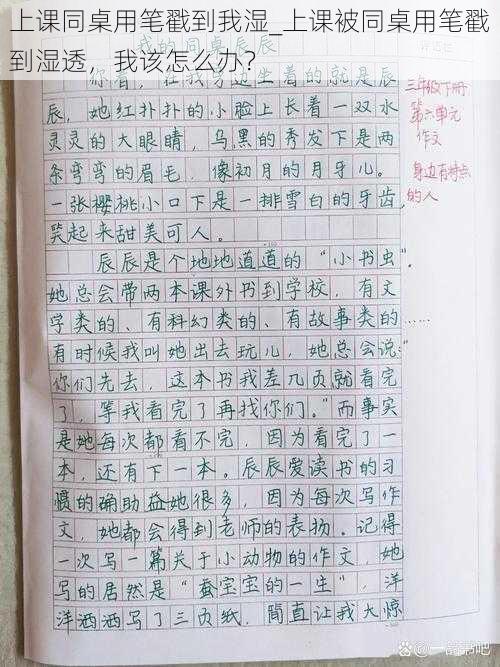 上课同桌用笔戳到我湿_上课被同桌用笔戳
到湿透，我该怎么办？
我的同桌辰辰
你看，在我身边坐着的就是辰
辰，她红扑扑的小脸上长着一双水
灵灵的大眼睛，乌黑的秀发下是两
条弯弯的眉毛，像初月的月牙儿。
一张樱桃小口下是一排雪白的牙齿，
笑起来甜美可人。
辰辰是个地地道道的“小书虫”。
她总会带两本课外书到学校，有文
学类的、有科幻类的、有故事类的……
有时候我叫她出去玩儿，她总会说:
“你们先去，这本书我差几页就看完
了，等我看完了再找你们。”而事实
是她每次都看不完，因为看完了一
本，还有下一本。辰辰爱读书的习
惯的确助益她很多，因为每次写作
文，她都会得到老师的表扬。记得
一次写一篇关于小动物的作文，她
写的居然是“蚕宝宝的一生”，洋
洋洒洒写了三页纸，简直让我大惊
三年级下册
第六单元
作文
身边有特点
的人